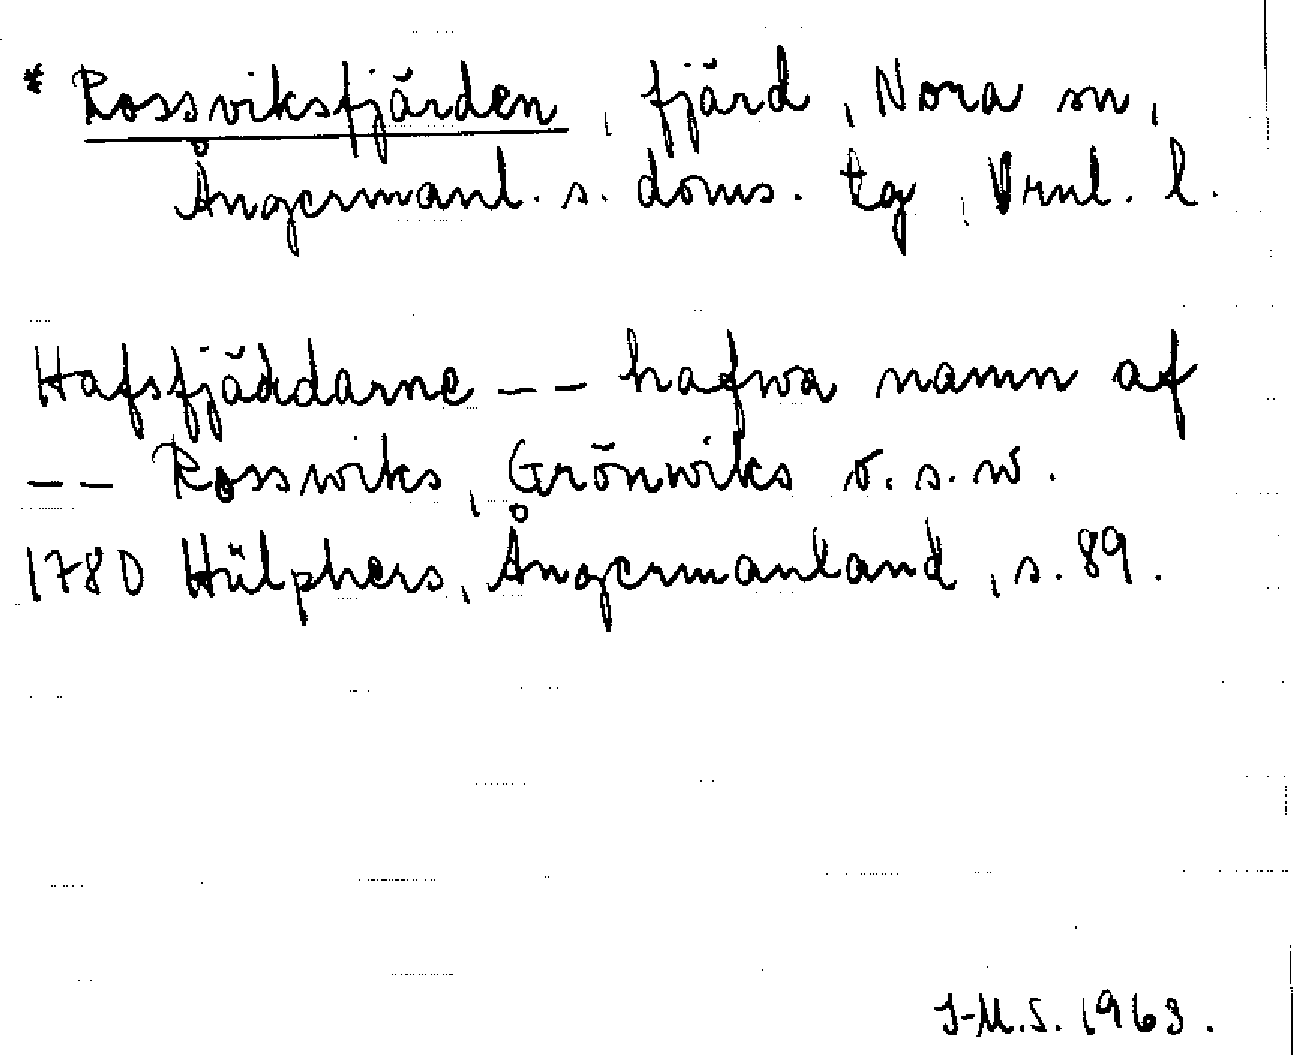 * Rossviksfjärden, fjärd, Nora sn,
Ångermanl. s. doms. tg, Vrnl. l.
Hafsfjäddarne -- hafwa namn af
-- Rosswiks, Grönwiks o. s. w.
1780 Hülphers, Ångermanland, s. 89.
I-M.S. 1963.